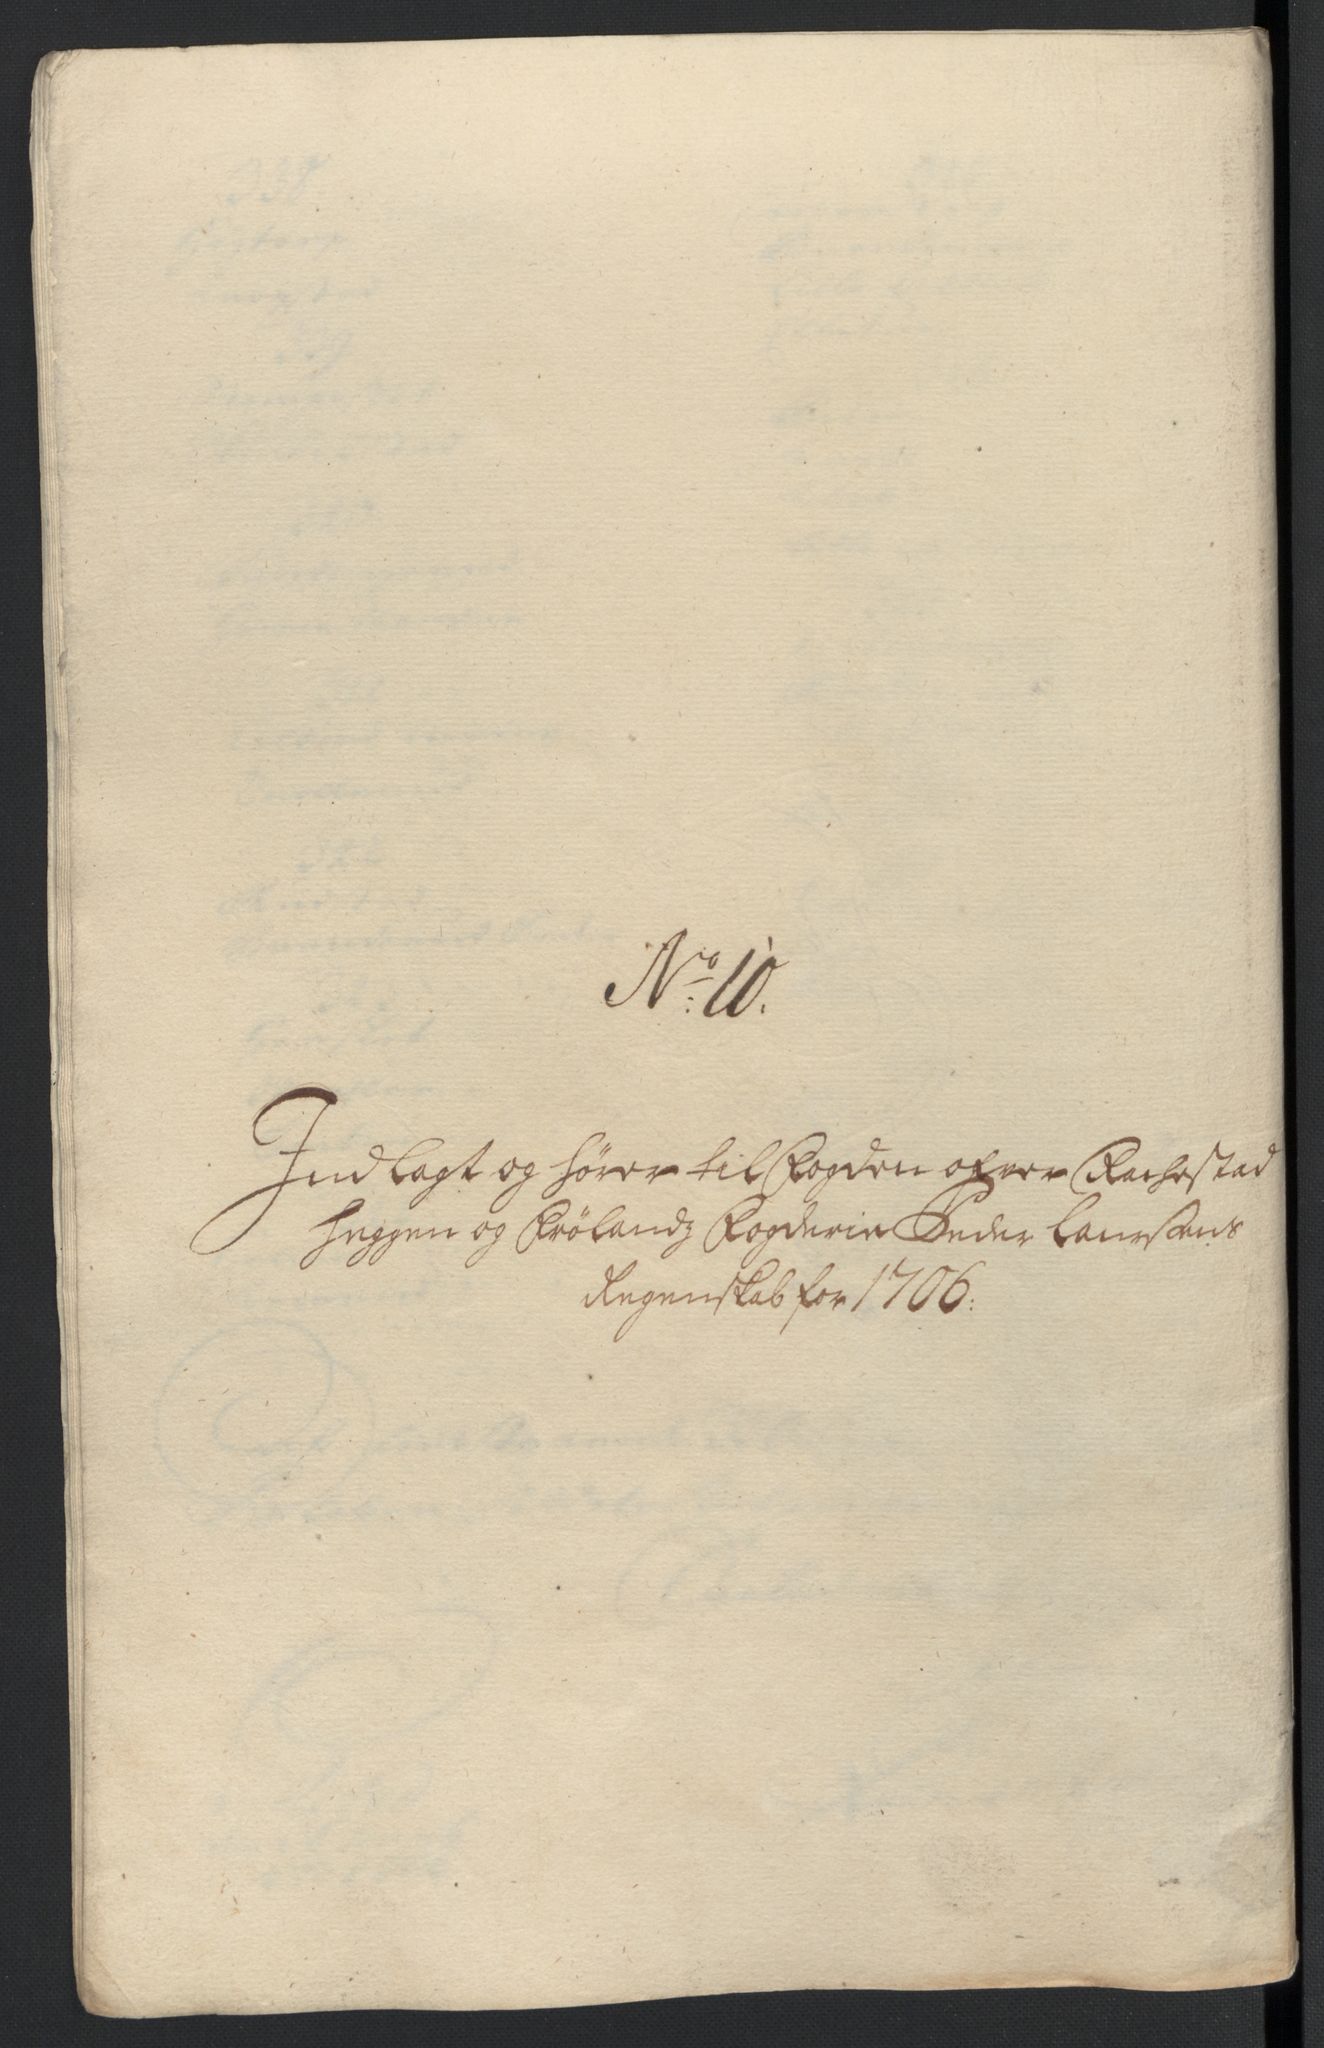 No: 10.
Indlagt og hører til Fogden ofver Rachestad
Heggen og Frølandz Fogderie Peder Laursøns
Regenskab for 1706: